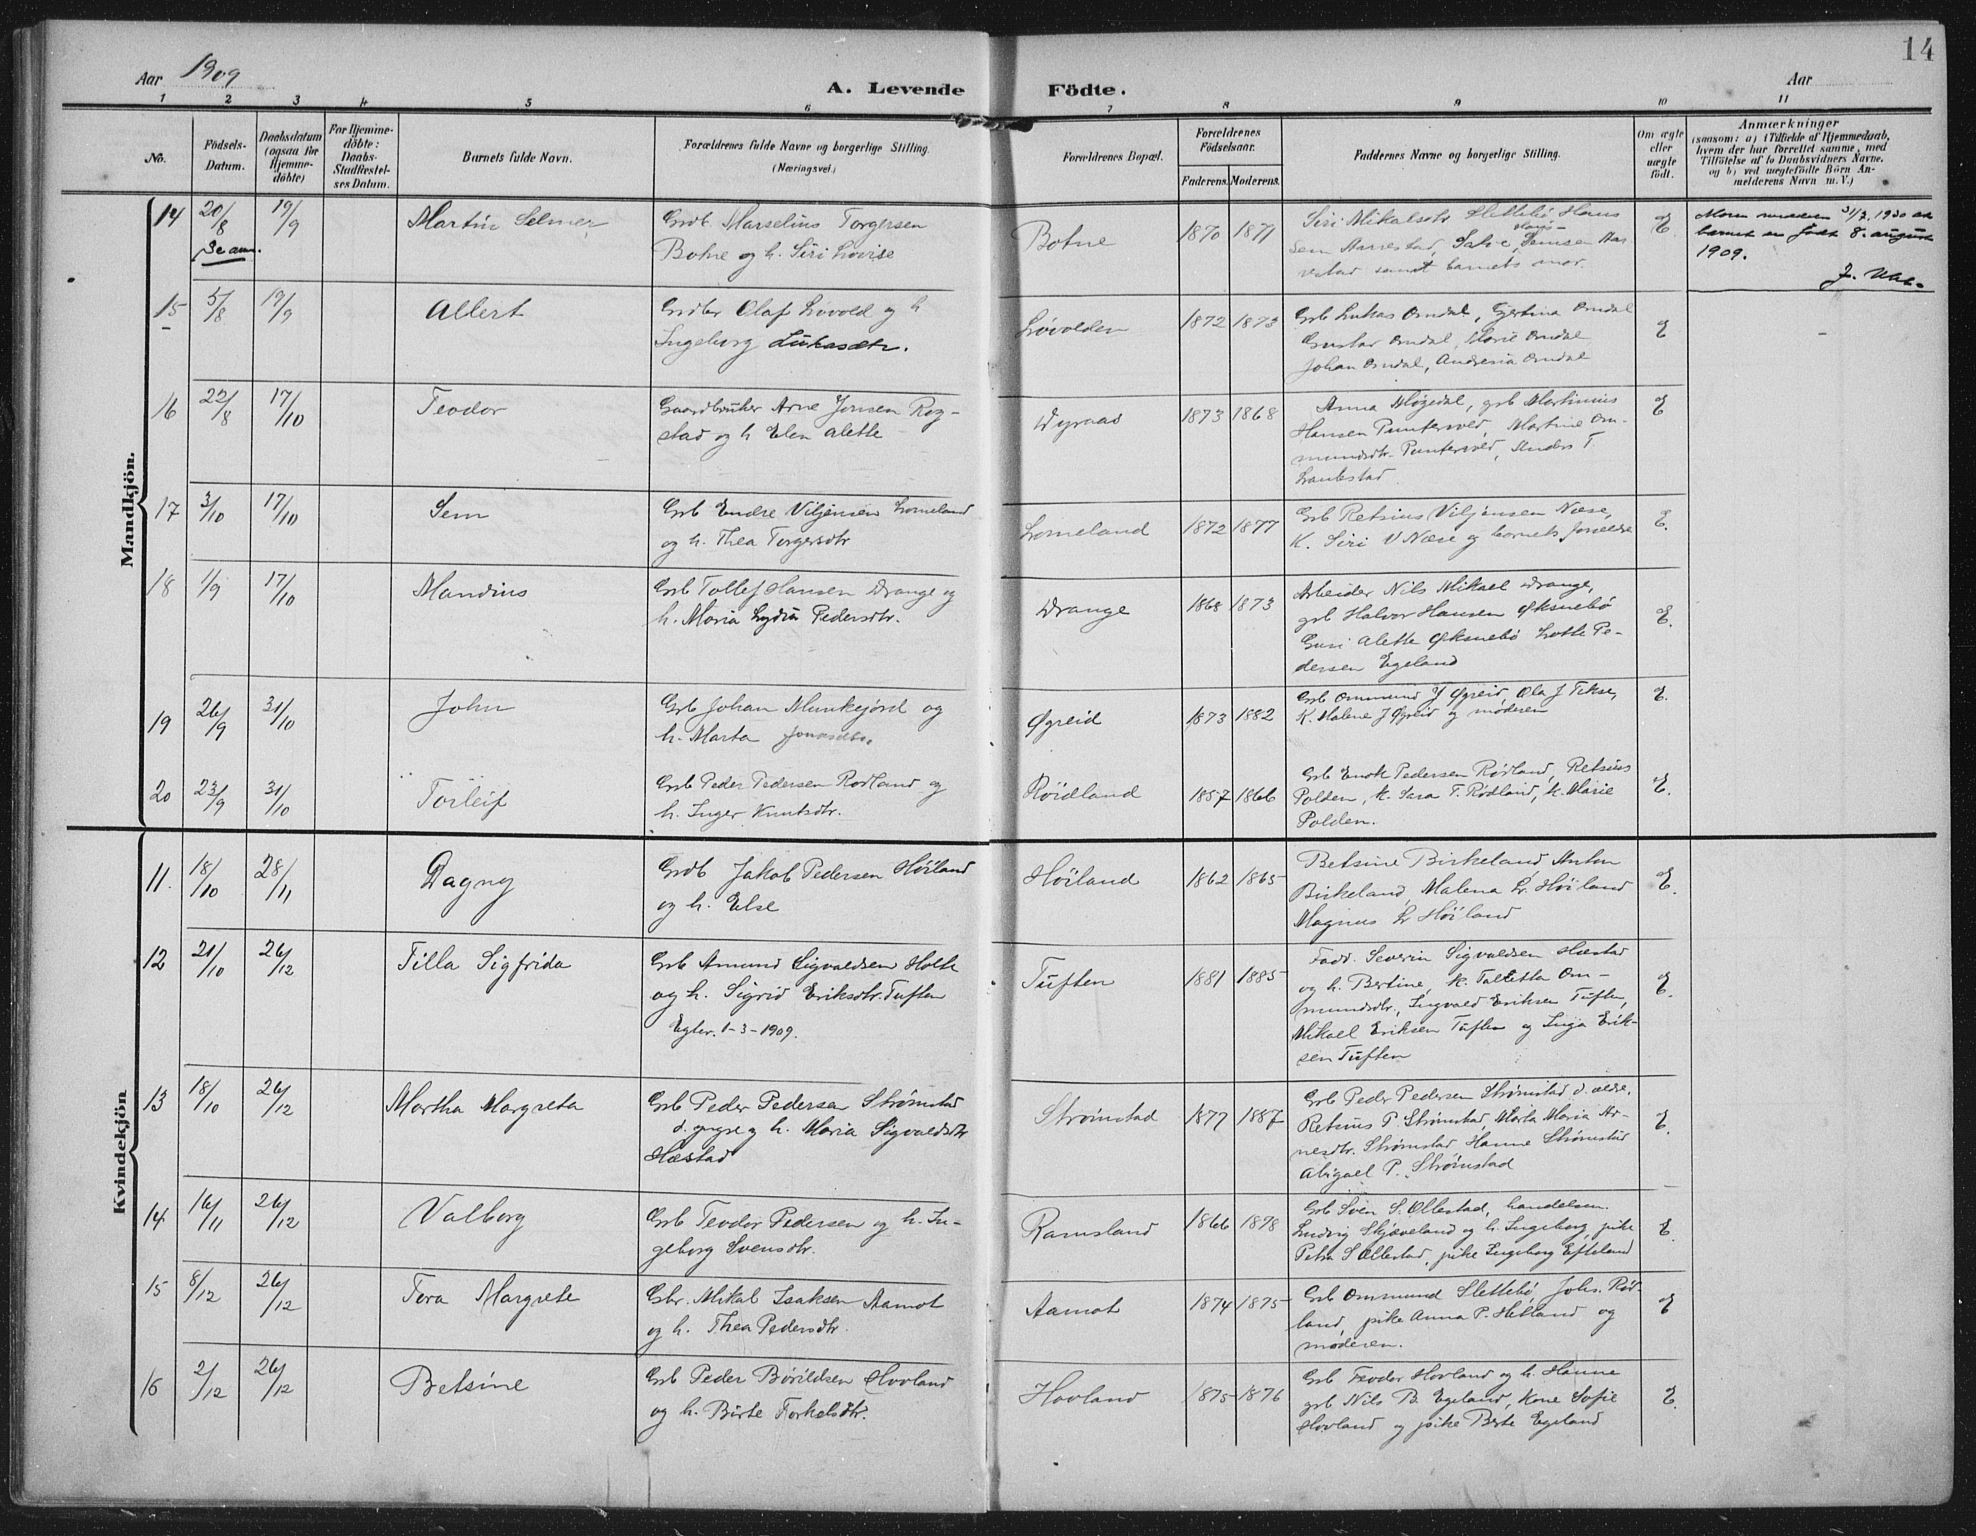 14
Aar 1909
A. Levende Födte.
Aar
1 2 3 4 5 6 7 8 9 10 11
No.
Födsels-Datum.
Daabsdatum (ogsaa for Hjemme-döbte)
For Hjemme-döbte: Daabs-Stadfæstel-ses Datum.
Barnets fulde Navn.
Forældrenes fulde Navne og borgerlige Stilling.
(Næringsvei.)
Forældrenes Bopæl.
Forældrenes Födselsaar.
Faderens. Moderens.
Faddernes Navne og borgerlige Stilling.
Om ægte eller uægte födt.
Anmærkninger
(saasom: a) i Tilfælde af Hjemmedaab,
hvem der har forrettet samme, med
Tilföielse af to Daabsvidners Navne.
og b) ved uægtefödte Börn An-
melderens Navn m. V.)
Mandkjön.
14 20/8 19/9 Martin Selmer
Se anm.
Grdb. Marselius Torgersen
Botne og h. Siri Lovise
Botne 1870 1871
Siri Mikalsdtr Slettebö Hans
Sem Aarrestad, Salve Semsen Aar
restad samt barnets mor
E
Moren 31/7 1930 at
barnet er født 8. august
1909.
15 5/8 19/9 Albert
Grdbr Olaf Løvold og h
Ingeborg Lukasdtr.
Løvolden 1872 1873
Grb Lukas Omdal, Gjertina Omdal
Gustav Omdal, Marie Omdal
Johan Omdal, Andresia Omdal
E
16 22/8 17/10 Teodor
Gaardbruker Arne Jonsen Rog-
stad og h Elen Alette
Dyraas 1873 1868
Anna Møgedal, grb Martinius
Hansen Puntervold, Martine Om-
mundsdtr. Puntervold, Anders T.
E
17 3/10 17/10 Sem
Grb Endre Viljamsen Lomeland
og h. Thea Torgersdtr
Lomeland 1872 1877
Grb Retsius Viljamsen Næse,
K. Siri V Næse og barnets forældre
E.
18 1/9 17/10 Mandius
Grb Tollef Hansen Drange og
h. Maria Lydia Pedersdtr.
Drange 1868 1873
Arbeider Nils Mikael Drange,
grb Halvor Hansen Øksnebö
Guri Alette Øksnebö Lotte Pe-
dersen Egeland
E.
19 26/9 31/10 John
Grb Johan Munkejörd og
h. Marta Jonasdtr.
Øgreid 1873 1882
Grb Ommund J Øgreid, Ola J Tekse,
K. Malene J Øgreid og möderen
E.
20 23/9 31/10 Torleif
Grb Peder Pedersen Rødland og
h. Inger Knutsdtr.
Röidland 1857 1866
Grb Enok Pedersen Rødland, Retsius
Polden, K. Sara T. Rødland, K. Marie
Polden.
E.
Kvindekjön
11. 18/10 28/11 Dagny
Grdb Jakob Pedersen Höiland
og h. Else
Höiland 1862 1865
Betsine Birkeland, Anton
Birkeland, Malena Höiland
Magnus Höiland
E.
12 21/10 26/12 Tilla Sigfrida
Grb Amund Sigvaldsen Holte
og h. Sigrid Eriksdtr. Tuften
Egter. 1-3-1909.
Tuften 1881 1885
Fadd. Severin Sigvaldsen Hæstad
og h. Bertine, K. Talletta Om-
mundsdtr, Ingvald Eriksen Tuften,
Mikael Eriksen Tuften og Inga Erik-
sen Tuften
E.
13 18/10 26/12 Martha Margreta
Grb Peder Pedersen Strömstad
d. yngre og h. Maria Sigvaldsdtr
Hæstad
Strömstad 1877 1887
Grb Peder Pedersen Strömstad d. ældre.
Retsius P. Strömstad, Marta Maria Ar-
nesdtr. Strömstad Hanne Strömstad
Abigael P. Strömstad
E.
14 16/11 26/12 Valborg
Grb Teodor Pedersen og h. In-
geborg Svensdtr.
Ramsland 1866 1878
Grb Sven S. Ollestad, handelsm.
Ludvig Skjæveland og h. Ingeborg, pike
Petra S Ollestad, pike Ingeborg Efteland
E.
15 8/12 26/12 Tora Margrete
Gbr. Mikal Isaksen Aamot
og h. Thea Pedersdtr.
Aamot 1874 1875
Grb Ommund Slettebö, Johs. Rød-
land, pike Anna P. Hetland og
moderen.
E
16 2/12 26/12 Betsine
Grb Peder Börildsen Hovland
og h. Birte Torkelsdtr.
Hovland 1875 1876
Grb Teodor Hovland og h. Hanne
grb Nils B. Egeland, Kone Sofie
Hovland og pike Berte Egeland
E.